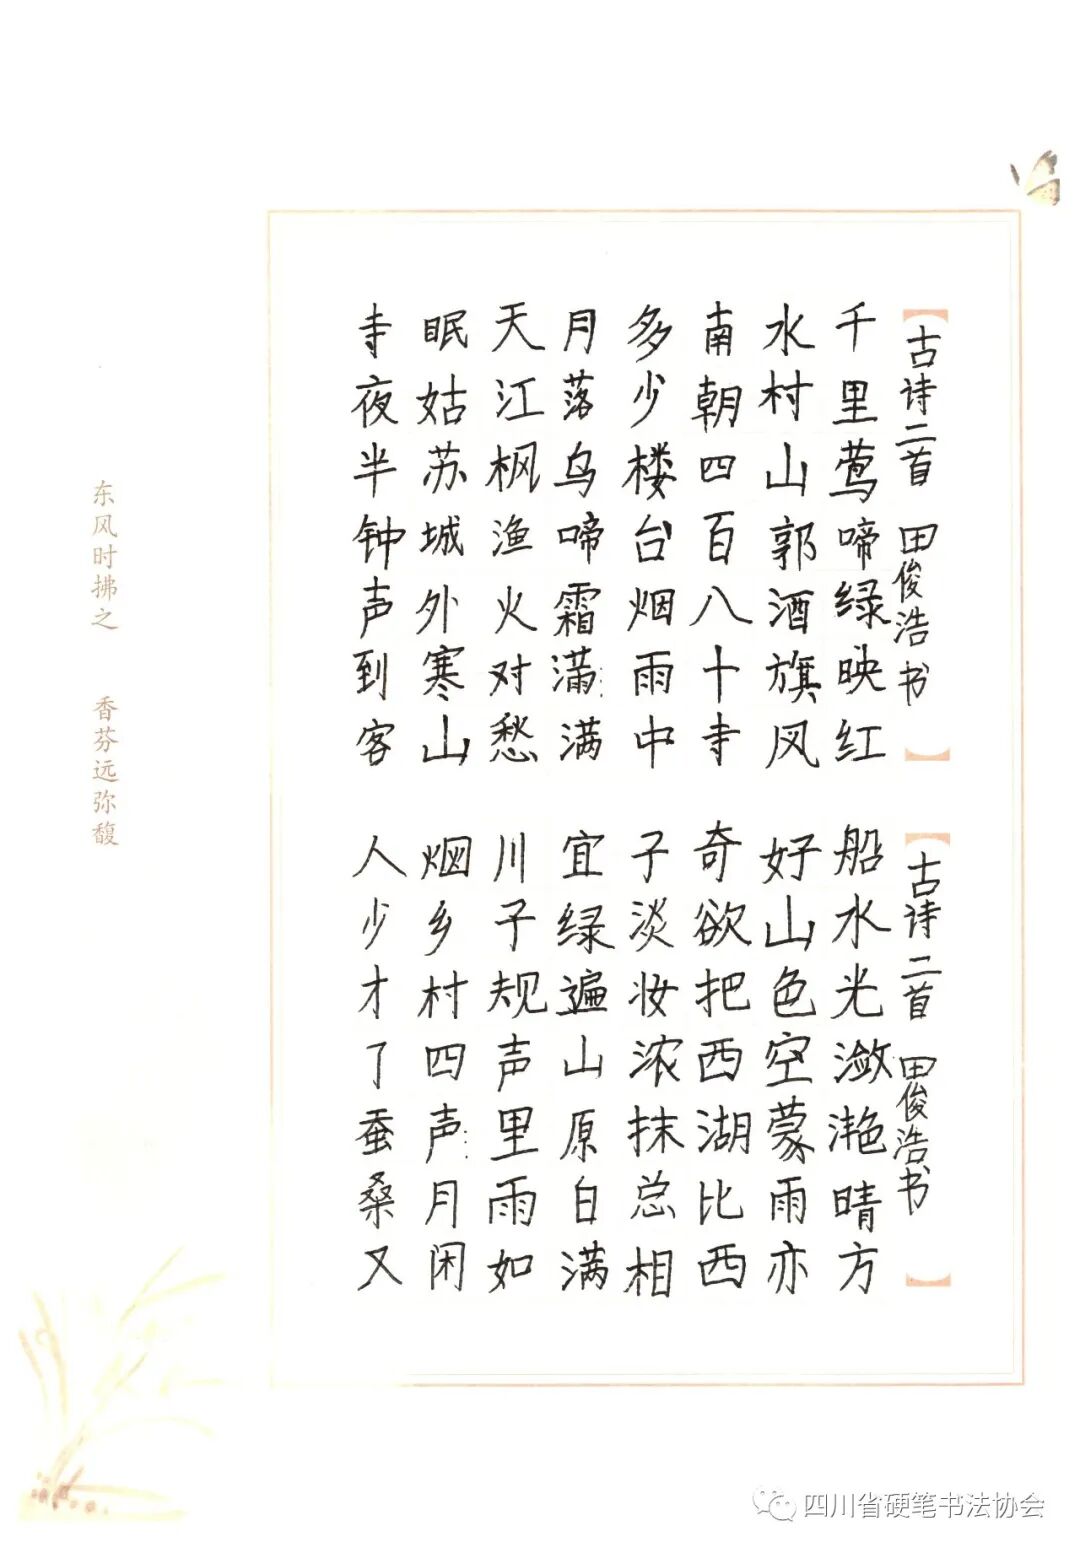 古诗二首 田俊浩书
千里莺啼绿映红
水村山郭酒旗风
南朝四百八十寺
多少楼台烟雨中
月落乌啼霜满满
天江枫渔火对愁
眠姑苏城外寒山
寺夜半钟声到客
古诗二首 田俊浩书
船水光潋滟晴方
好山色空蒙雨亦
奇欲把西湖比西
子淡妆浓抹总相
宜绿遍山原白满
川子规声里雨如
烟乡村四声月闲
人少才了蚕桑又
东风时拂之 香芬远弥馥
四川省硬笔书法协会